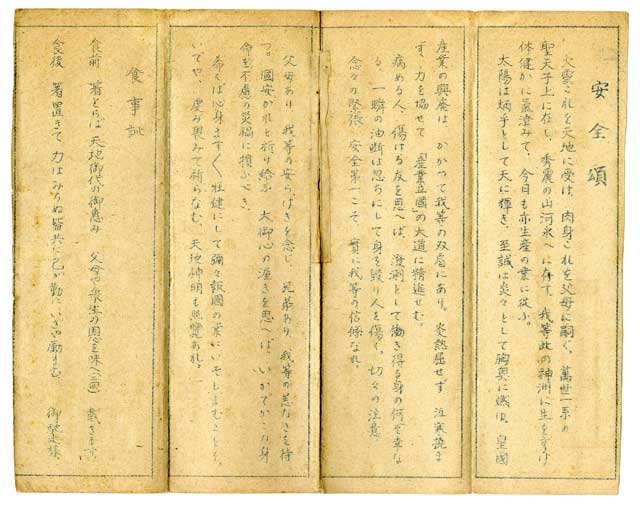 安全頌
火霊これを天地に受け、肉身これを父母に嗣ぐ。萬世一系の
聖天子上に在し、秀麗の山河永へに存す。我等此の神洲に生を享け
体健かに氣澄みて、今日も亦生産の業に従ふ。
太陽は炳乎として天に輝き、至誠は炎々として胸奥に燃ゆ。皇國
産業の興廃は、かかつて我等の双肩にあり。炎熱屈せず、沍寒撓ま
ず、力を協せて「産業立國」の大道に精進せむ。
病める人、傷ける友を思へば、溌溂として働き得る身の何ぞ幸な
る、一瞬の油断は忽ちにして身を毀り人を傷く。切々の注意
念々の緊張、安全第一こそ、實に我等の信條なれ。
父母あり、我等の安らけきを念じ、兄弟あり、我等の恙なきを待
つ。國安かれと祈り給ふ、大御心の渥きを思へば、いかでかこの身
命を不慮の災禍に損ふべき。
希くは心身ます〱壮健にして彌々報國の業にいそしまむことを。
いでや、虔み畏みて祈らなむ、天地神明も照覧あれ。
食事訓
食前 箸とらば 天地御代の御恵み 父母や衆生の恩を味へ(三回) 戴きます。
食後 箸置きて 力はみちぬ皆共に己が勤にいざや励まむ 御馳走様。